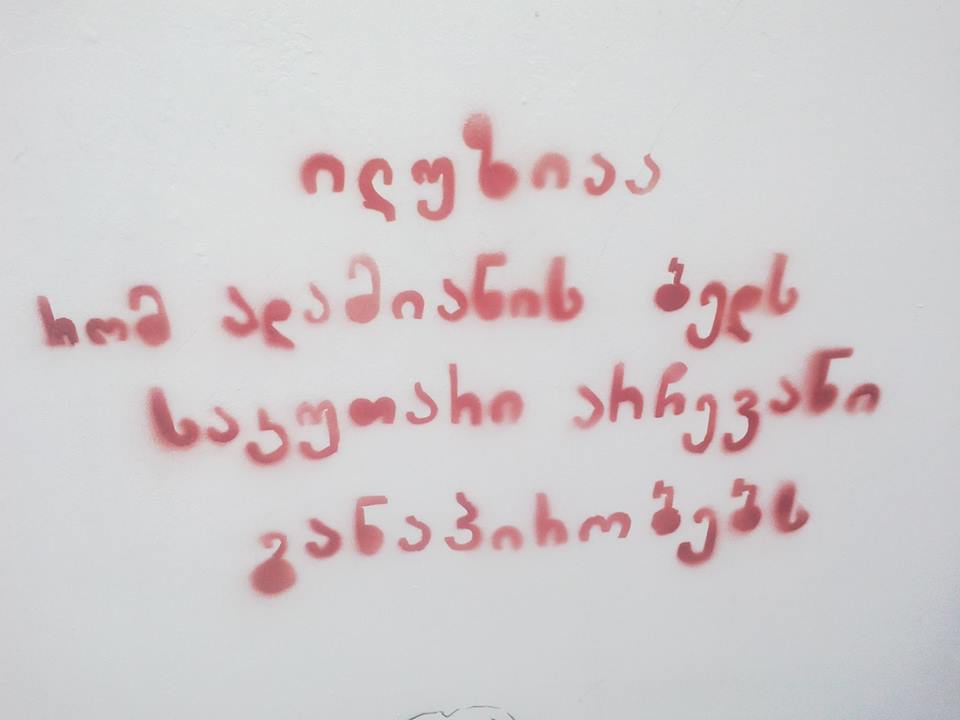 ილუზიაა
რომ ადამიანის ბედს
საკუთარი არჩევანი
განაპირობებს